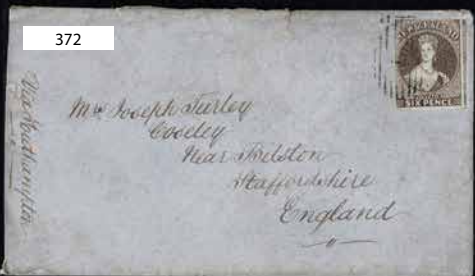 372
NEW ZEALAND
SIX PENCE
Via Southampton
Mr Joseph Turley
Coseley
Near Bilston
Staffordshire
England